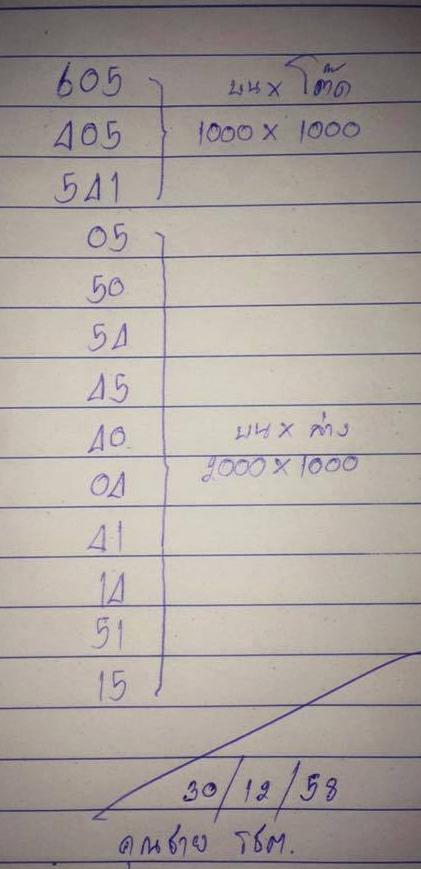 605 บน x โต๊ด
405 1000 x 1000
541
05
50
54
45
40 บน x ล่าง
04 2000 x 1000
41
14
51
15
30/12/58
คุณชาย รชต.